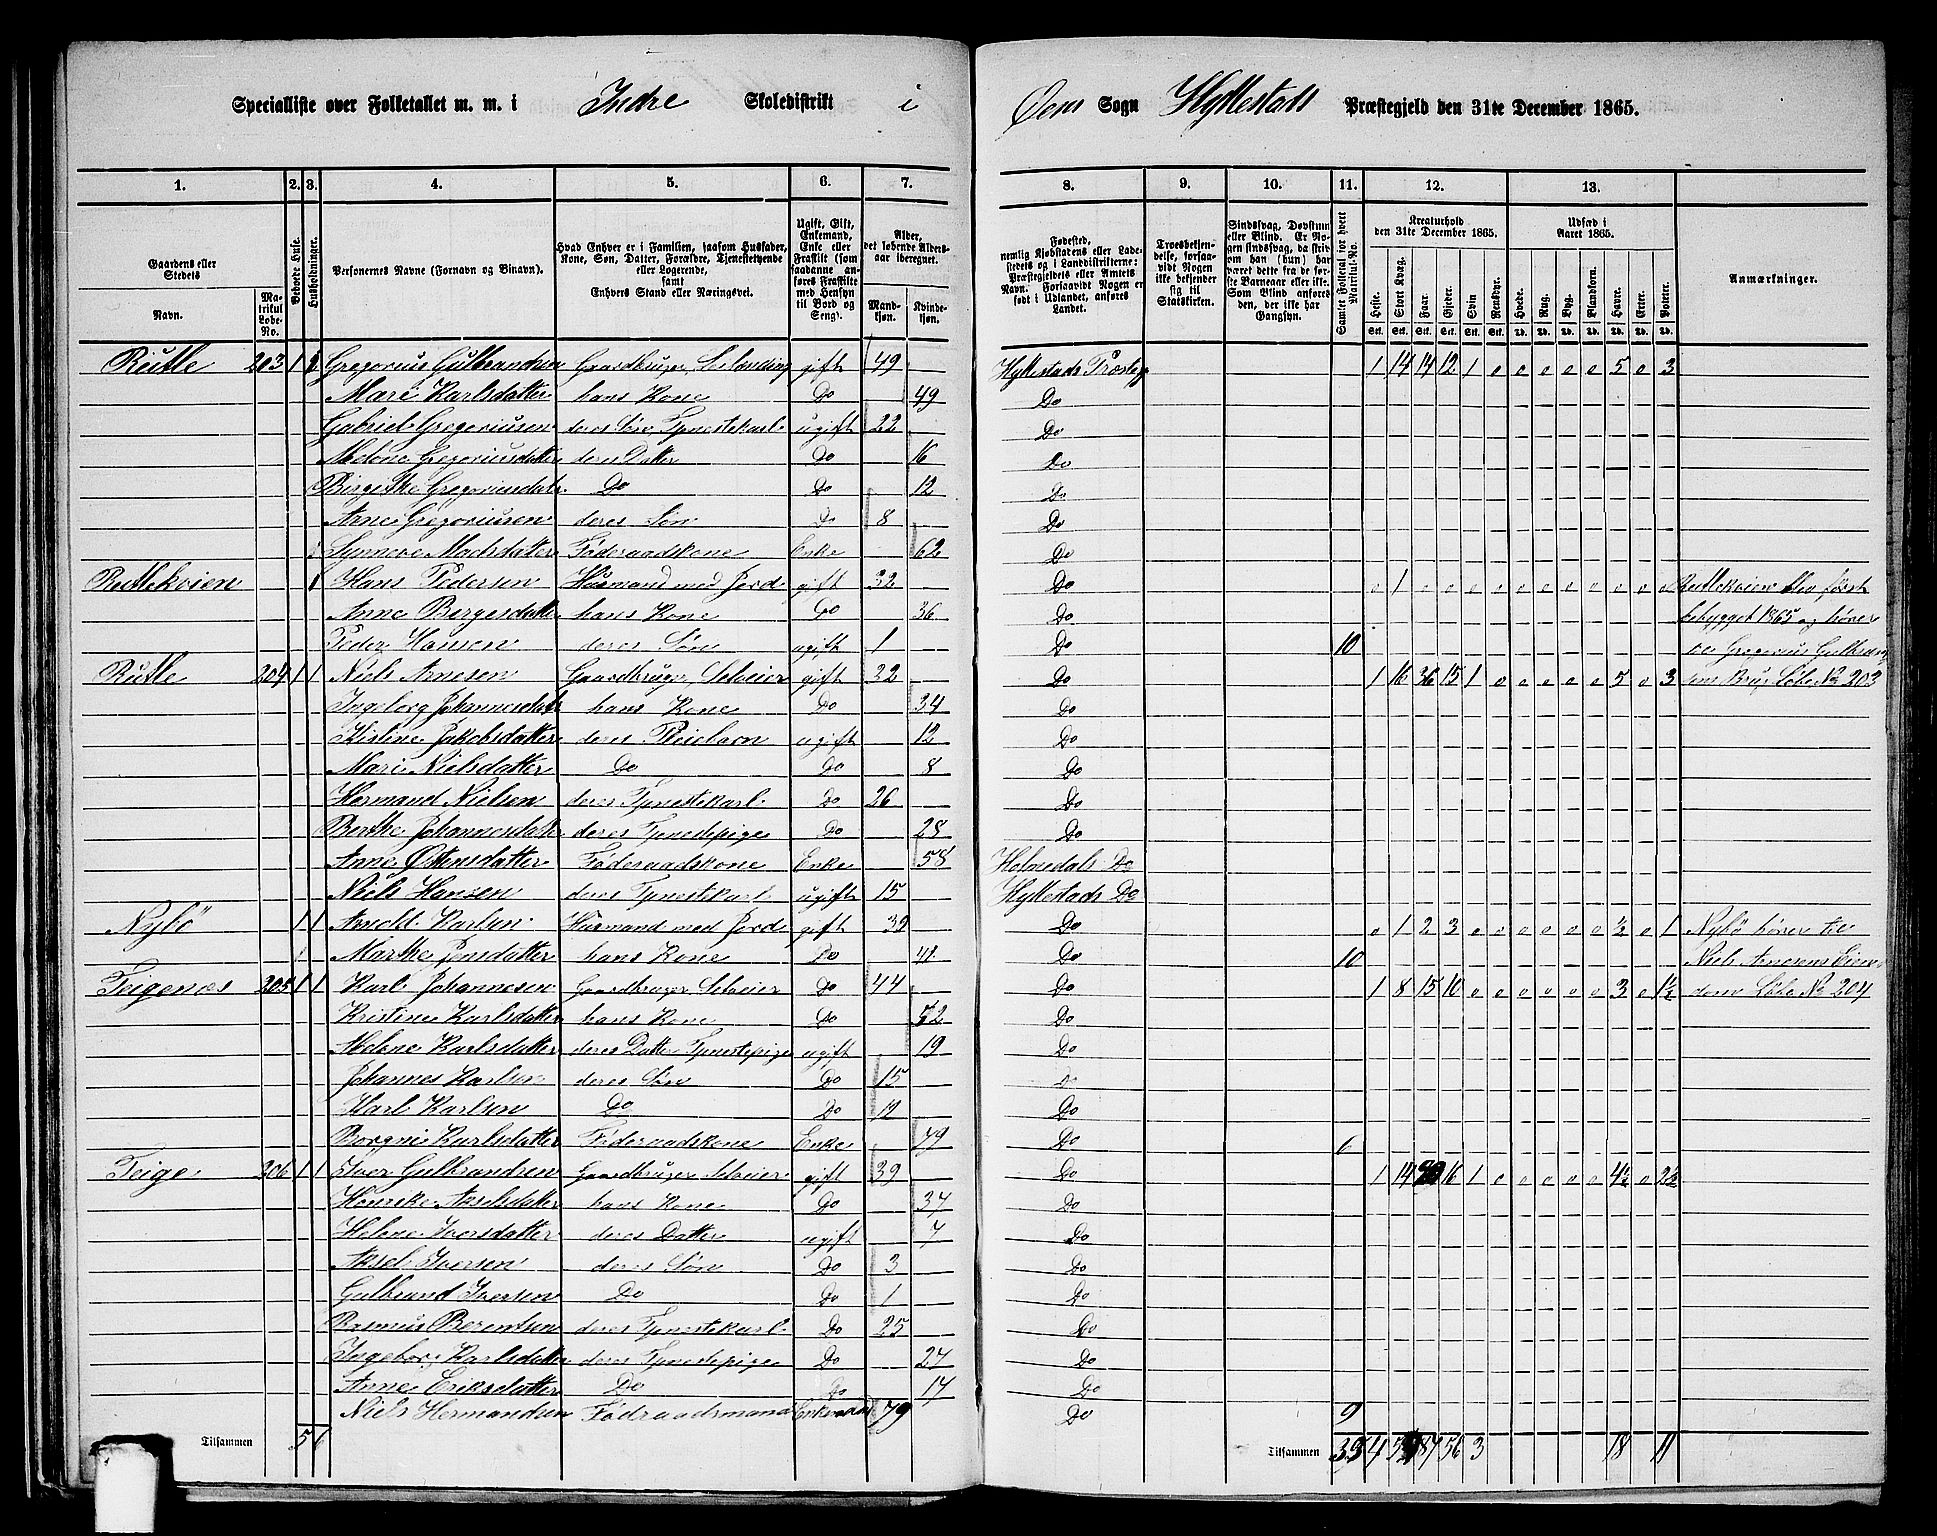 Specialliste over Folketallet m. m. i Indre Skoledistrikt i Øens Sogn Hyllestads Præstegjeld den 31te December 1865.
1. 2. 3. 4. 5. 6. 7. 8. 9. 10. 11. 12. 13.
Gaardens eller Stedets Navn. Matrikul Løbe-No. Beboede Huse. Husholdninger. Personernes Navne (Fornavn og Binavn). Hvad Enhver er i Familien, saasom Husfader, Kone, Søn, Datter, Forældre, Tjenestetyende eller Logerende, samt Enhvers Stand eller Næringsvei. Ugift, Gift, Enkemand, Enke eller Fraskilt (som saadanne anføres Fraskilte med Hensyn til Bord og Seng). Alder, det løbende Aldersaar iberegnet. Mandkjøn. Kvindekjøn.
Fødested, nemlig Kjøbstadens eller Ladestedets og i Landdistrikterne: Præstegjeldets eller Amtets Navn. Forsaavidt Nogen er født i Udlandet, anføres Landet. Troesbekjendelse, forsaavidt Nogen ikke bekjender sig til Statskirken. Sindssvag, Døvstum eller Blind. Er Nogen sindssvag, da skrives om han (hun) har været dette fra de første Barneaar eller ikke. Som Blind anføres den, der ikke har Gangsyn. Samlet Folketal for hvert Matrikul-No. Kreaturhold den 31te December 1865. Heste. Stort Kvæg. Faar. Gjeder. Svin. Rensdyr. Udsæd i Aaret 1865. Hvede. Rug. Byg. Blandkorn. Havre. Erter. Poteter. Anmærkninger.
Rutle 203 1 2 Gregorius Gulbrandsen Gaardbruger Selveier gift 49 Hyllestads Præstegj 1 14 14 12 1 0 0 0 0 0 5 0 3
Mari Karlsdatter hans Kone Do 49 Do
Gabriel Gregoriusen deres Søn, Tjenestekarl ugift 22 Do
Melone Gregoriusdatter deres Datter Do 16 Do
Birgithe Gregoriusdatr Do Do 12 Do
Arne Gregoriusen deres Søn Do 8 Do
Synneve Madsdatter Føderaadskone Enke 62 Do
Rutlekvien 1 Hans Pedersen Husmand med Jord gift 32 Do 0 1 0 0 0 0 0 0 0 0 0 0 0 Rutlekvien blev først
Anne Børgesdatter hans Kone Do 36 Do bebygget 1865 og hører
Peder Hansen deres Søn ugift 1 Do 10 til Gregorius Gulbrand
Rutle 204 1 1 Niels Arnesen Gaardbruger Selveier gift 32 Do 1 16 36 15 1 0 0 0 0 0 5 0 3 sens Brug Løbe No 203
Ingeborg Johannesdatr hans Kone Do 34 Do
Kistine Jakobsdatter deres Pleiebarn ugift 12 Do
Mari Nielsdatter Do Do 8 Do
Hermand Nielsen deres Tjenestekarl Do 26 Do
Berthe Johannesdatter deres Tjenestepige Do 28 Do
Anne Østensdatter Føderaadskone Enke 58 Holmedals Do
Niels Hansen deres Tjenestekarl ugift 15 Hyllestads Do
Nybö 1 1 Arnold Karlsen Husmand med Jord gift 39 Do 0 1 2 3 0 0 0 0 0 0 ½ 0 1 Nybö hører til
Marthe Jensdatter hans Kone Do 41 Do 10 Niels Arnesens Eien
Teigenæs 205 1 1 Karl Johannesen Gaardbruger Selveier Do 44 Do 1 8 15 10 0 0 0 0 0 0 3 0 1½ dom Løbe No 204
Kristine Karlsdatter hans Kone Do 52 Do
Helene Karlsdatter deres Datter Tjenestepige ugift 19 Do
Johannes Karlsen deres Søn Do 15 Do
Karl Karlsen Do Do 12 Do
Borgni Karlsdatter Føderaadskone Enke 79 Do 6
Teige 206 1 1 Iver Gulbrandsen Gaardbruger Selveier gift 39 Do 1 14 20 16 1 0 0 0 0 0 4½ 0 2½
Henrike Akselsdatter hans Kone Do 37 Do
Helene Iversdatter deres Datter ugift 7 Do
Aksel Iversen deres Søn Do 3 Do
Gulbrand Iversen Do Do 1 Do
Rasmus Berentsen deres Tjenestekarl Do 25 Do
Ingeborg Karlsdatter deres Tjenestepige Do 27 Do
Anne Eriksdatter Do Do 17 Do
Niels Hermandsen Føderaadsmand Enkemand 79 Do 9
Tilsammen 5 6 Tilsammen 35 4 87 56 3 18 11